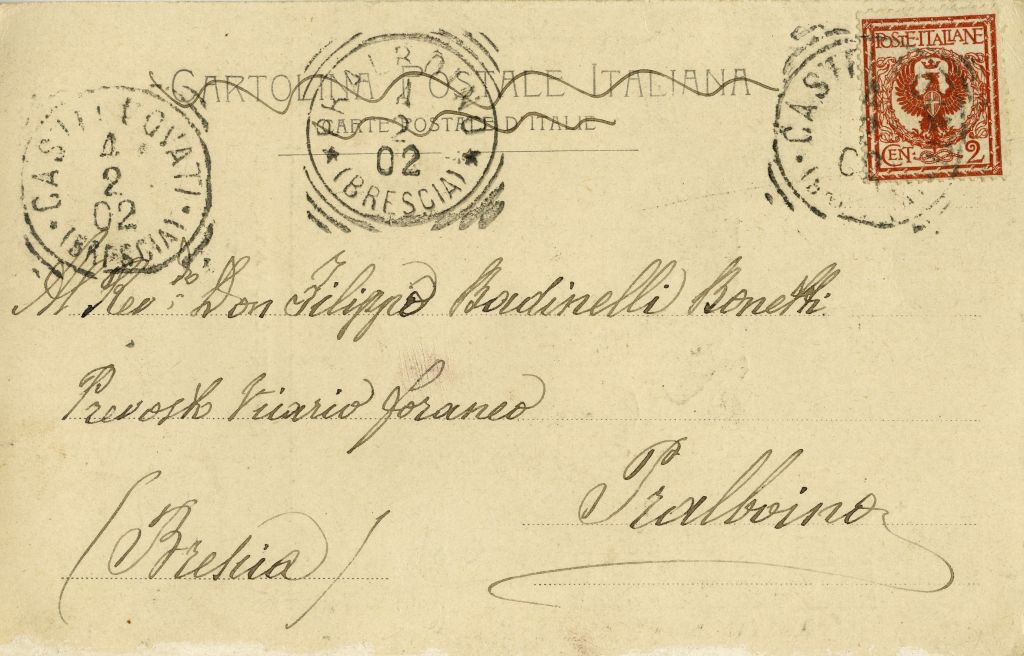 CARTOLINA POSTALE ITALIANA
CARTE POSTALE D'ITALIE
CASTELCOVATI
4
2
02
(BRESCIA)
PRALBOINO
4
2
02
(BRESCIA)
POSTE·ITALIANE
CEN: 2
CAST
02
Al Rev.do Don Filippo Badinelli Bonetti
Prevosto Vicario foraneo
Pralboino
(Brescia)